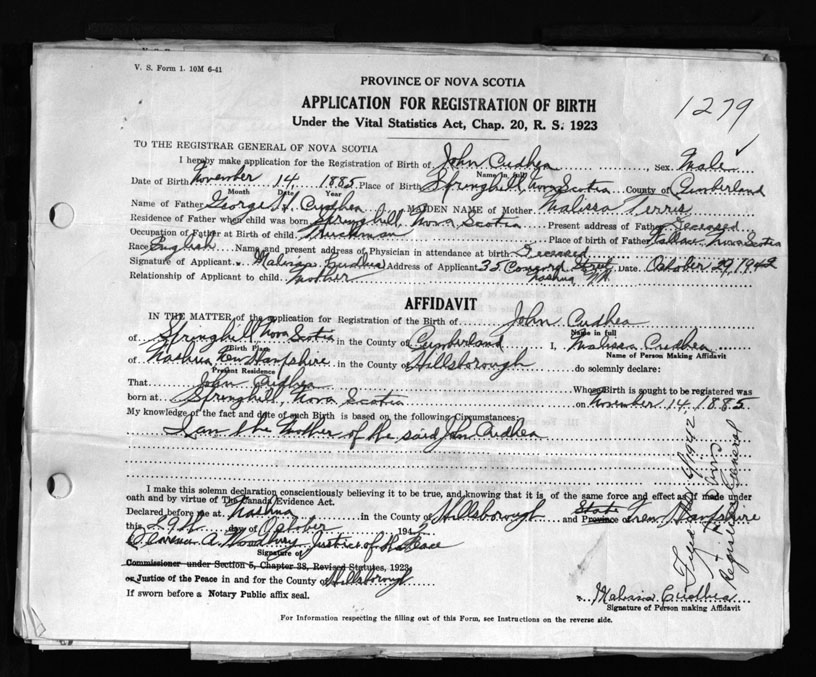 V. S. Form 1. 10M 6-41
PROVINCE OF NOVA SCOTIA
APPLICATION FOR REGISTRATION OF BIRTH
1279
Under the Vital Statistics Act, Chap. 20, R. S. 1923
TO THE REGISTRAR GENERAL OF NOVA SCOTIA
I hereby make application for the Registration of Birth of John Cudhea Sex Male
Name in full
Date of Birth November 14 1885 Place of Birth Springhill Nova Scotia County of Cumberland
Month Date Year
Name of Father George Cudhea MAIDEN NAME of Mother Malissa Terris
Residence of Father when child was born Springhill, Nova Scotia Present address of Father Deceased
Occupation of Father at Birth of child Place of birth of Father Wallace, Nova Scotia
Race English Name and present address of Physician in attendance at birth Deceased
Signature of Applicant Cudhea Address of Applicant 35 Concord Street Date October 29, 1942
Nashua N.H.
Relationship of Applicant to child Mother
AFFIDAVIT
IN THE MATTER of the application for Registration of the Birth of John Cudhea
Name in full
of Springhill Nova Scotia in the County of Cumberland I, Malissa Cudhea
Birth Place Name of Person Making Affidavit
of Nashua New Hampshire in the County of Hillsborough do solemnly declare:
Present Residence
That John Cudhea Whose Birth is sought to be registered was
born at Springhill, Nova Scotia on November 14, 1885
My knowledge of the fact and date of such Birth is based on the following Circumstances:
I am the Mother of the said John Cudhea
I make this solemn declaration conscientiously believing it to be true, and knowing that it is of the same force and effect as if made under
oath and by virtue of The Canada Evidence Act.
Declared before me at Nashua in the County of Hillsborough and Province of State New Hampshire
this 29th day of October 1942
Clarence A. Woodbury Justice of Peace
Signature of
Commissioner under Section 5, Chapter 38, Revised Statutes, 1923
or Justice of the Peace in and for the County of Hillsborough
If sworn before a Notary Public affix seal.
Cudhea
Signature of Person making Affidavit
For Information respecting the filling out of this Form, see Instructions on the reverse side.
Filed 6/1942
Registrar General